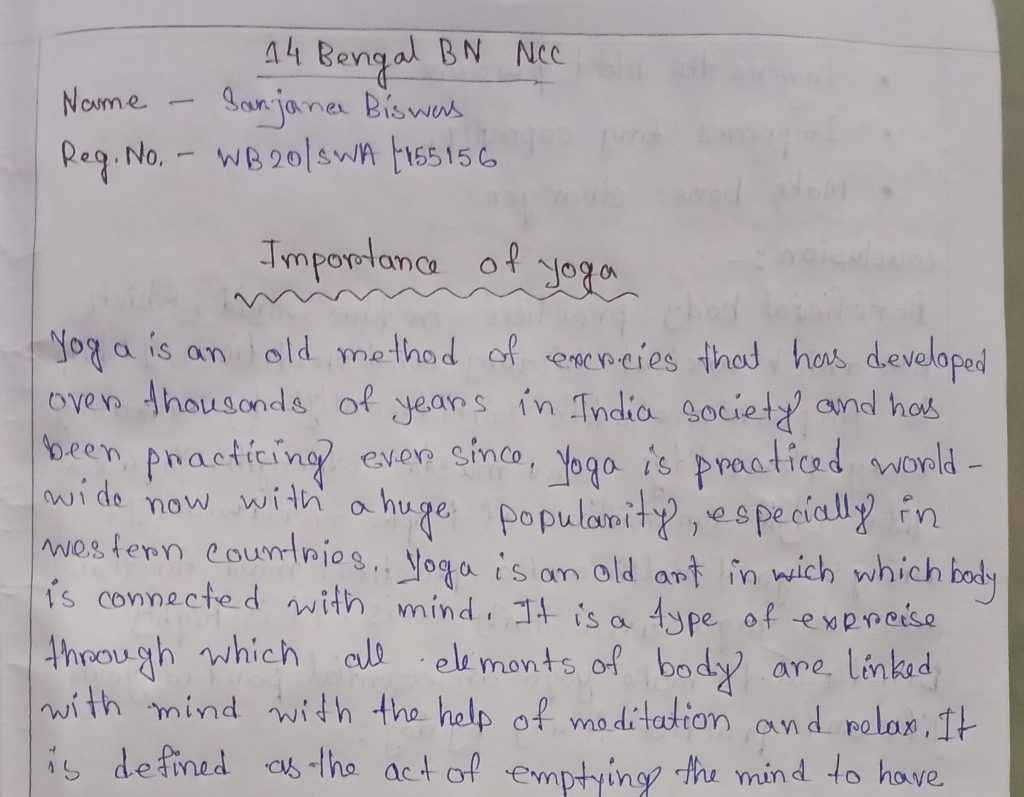 14 Bengal BN NCC
Name - Sanjana Biswas
Reg. No. - WB20/SWA/155156
Importance of yoga
Yoga is an old method of excrcies that has developed
over thousands of years in India society and has
been practicing ever since. Yoga is practiced world-
wide now with a huge popularity, especially in
western countries. Yoga is an old art in wich which body
is connected with mind. It is a type of exercise
through which all elements of body are linked
with mind with the help of meditation and relax. It
is defined as the act of emptying the mind to have